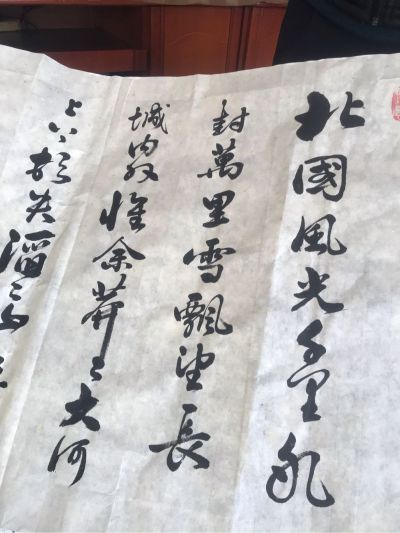 北國風光千里冰
封萬里雪飄望長
城内外惟余莽々大河
上下頓失滔々